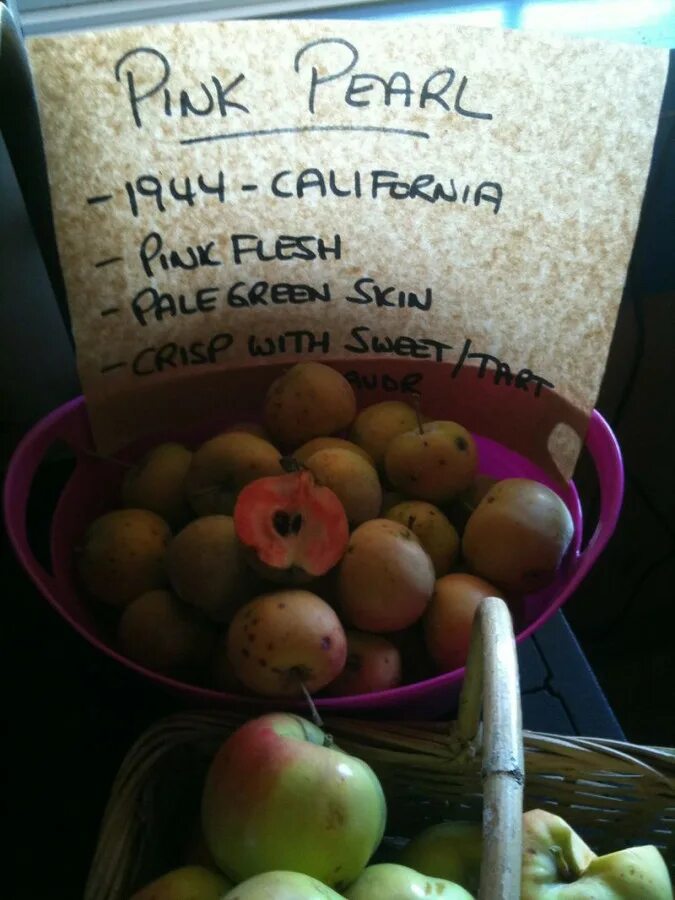 PINK PEARL
- 1944 - CALIFORNIA
- PINK FLESH
- PALE GREEN SKIN
- CRISP WITH SWEET/TART